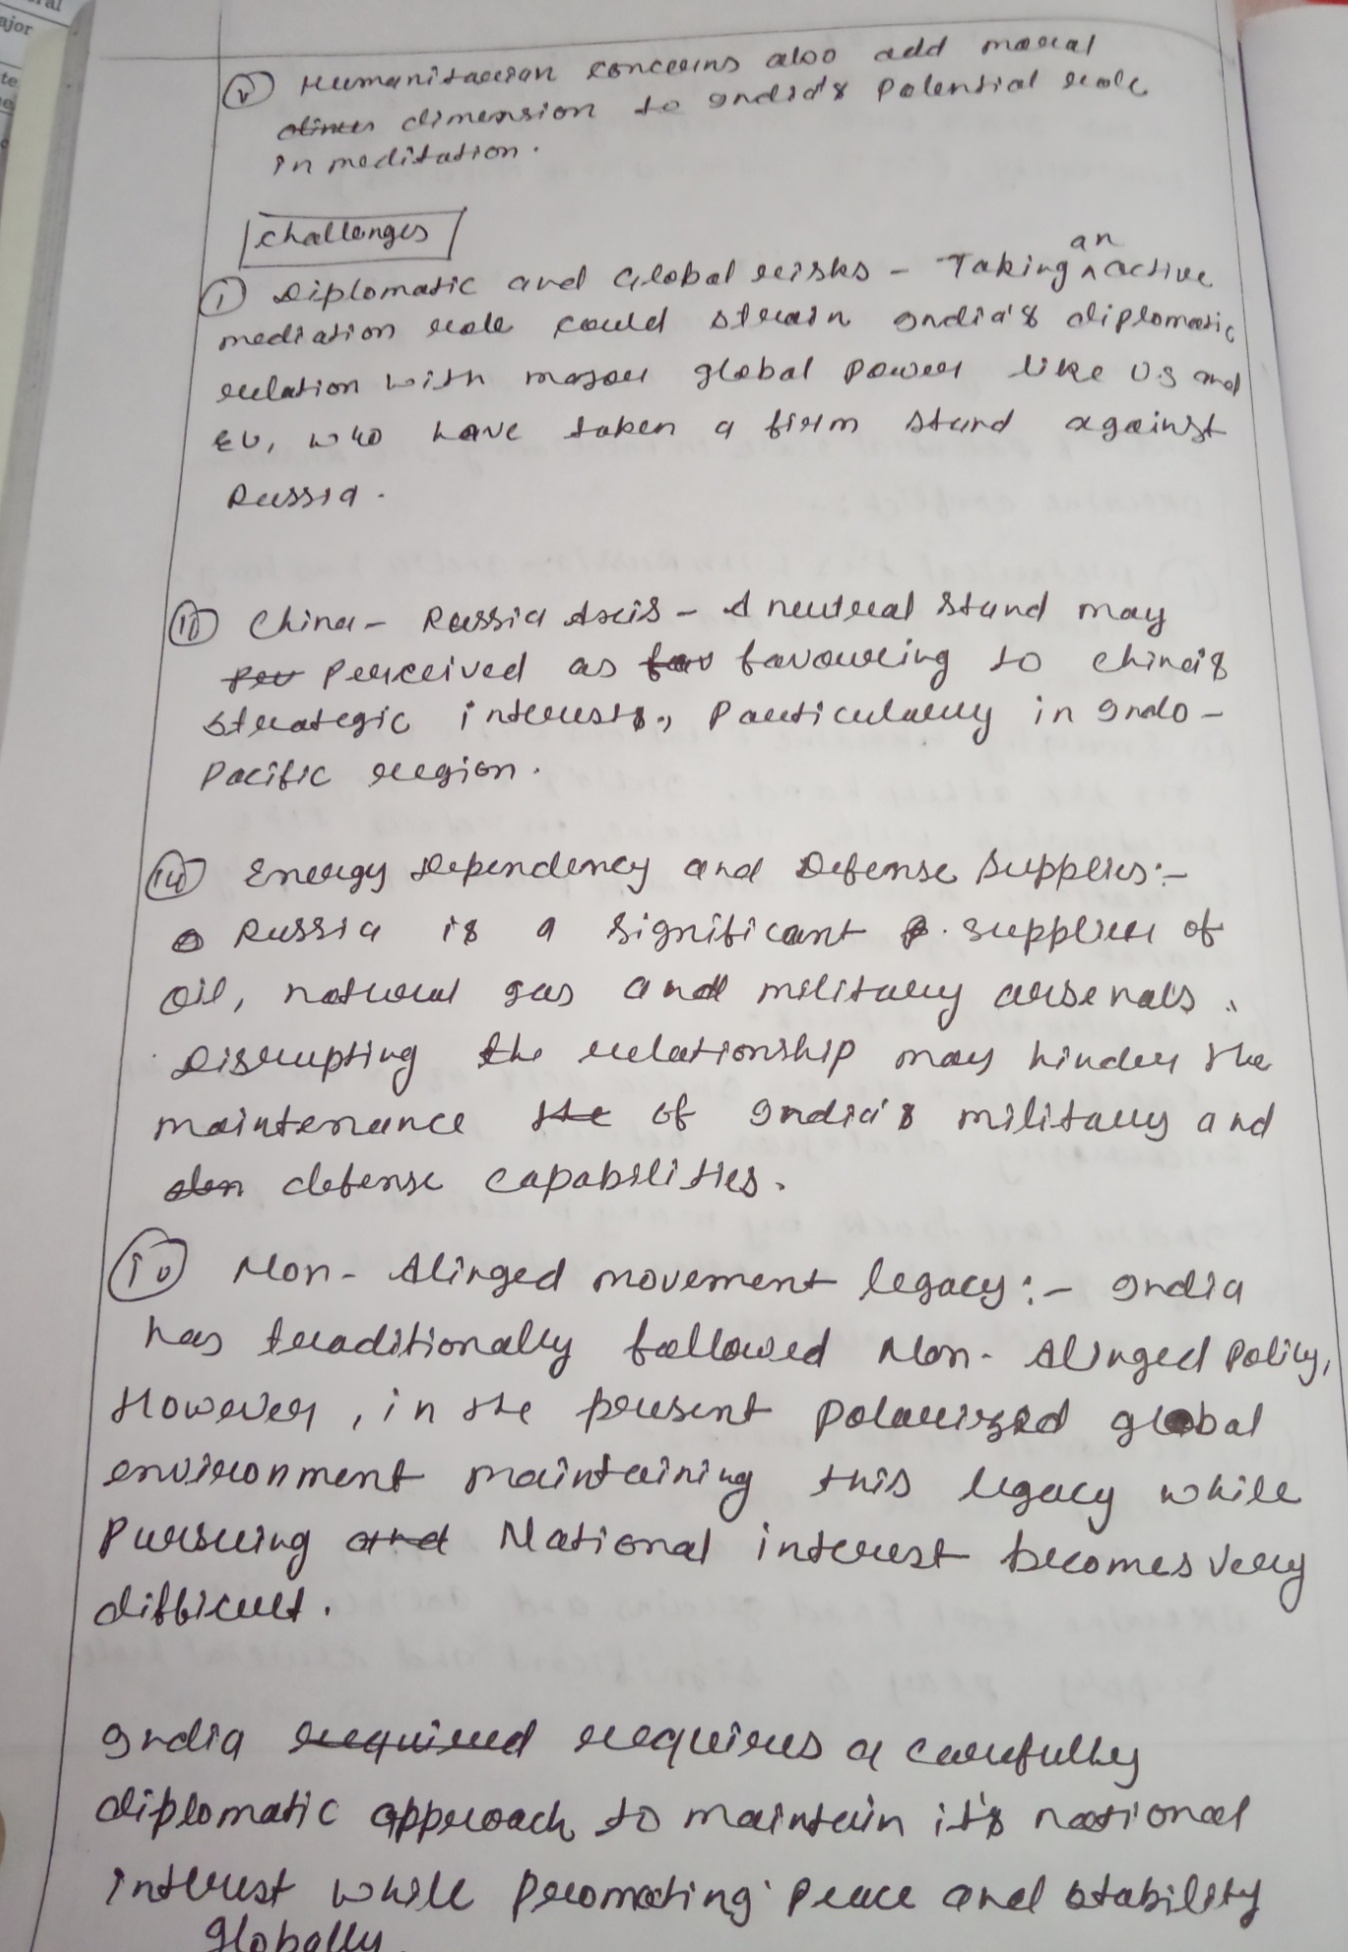 ral
ajor
te
(v) Humanitarian concerns also add moral
dimension to India's Potential role
in meditation.
Challenges
(i) Diplomatic and Global risks - Taking an active
mediation role could strain India's diplomatic
relation with major global power like US and
EU, who have taken a firm stand against
Russia.
(ii) China - Russia Axis - A neutral stand may
Perceived as favouring to China's
strategic interests, Particularly in Indo -
Pacific region.
(iii) Energy Dependency and Defense Supplies:-
Russia is a significant supplier of
oil, natural gas and military arsenals.
Disrupting the relationship may hinder the
maintenance of India's military and
defense capabilities.
(iv) Non - Alinged movement legacy:- India
has traditionally followed Non - Alinged Policy,
However, in the present polarized global
environment maintaining this legacy while
Pursuing National interest becomes very
difficult.
India required requires a carefully
diplomatic approach to maintain it's national
interest while promoting peace and stability
globally.